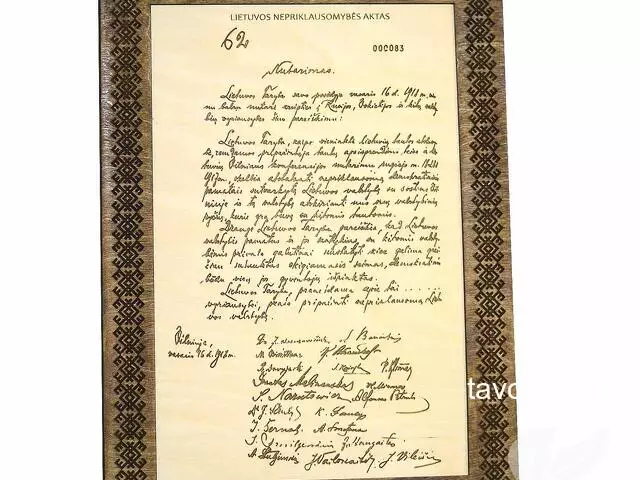 LIETUVOS NEPRIKLAUSOMYBĖS AKTAS
62
000083
Nutarimas.
Lietuvos Taryba savo posėdyje vasario 16 d. 1918 m. vie
nu balsu nutarė kreiptis į Rusijos, Vokietijos ir kitų valsty
bių vyriausybes šiuo pareiškimu:
Lietuvos Taryba, kaipo vienintelė lietuvių tautos atstovy
bė, remdamos pripažintąja tautų apsisprendimo teise ir lie
tuvių Vilniaus konferencijos nutarimu rugsėjo m. 18-23 d.
1917 m., skelbia atstatanti nepriklausomą demokratiniais
pamatais sutvarkytą Lietuvos valstybę su sostine Vil
niuje ir tą valstybę atskirianti nuo visų valstybinių
ryšių, kurie yra buvę su kitomis tautomis.
Drauge Lietuvos Taryba pareiškia, kad Lietuvos
valstybės pamatus ir jos santykius su kitomis valsty
bėmis privalo galutinai nustatyti kiek galima grei
čiau sušauktas steigiamasis seimas, demokratiniu
būdu visų jos gyventojų išrinktas.
Lietuvos Taryba, pranešdama apie tai . . . . . .
vyriausybei, prašo pripažinti nepriklausomą Lietu
vos valstybę.
Vilniuje,
vasario 16 d. 1918 m.
Dr. J.
M.
K.
S. Narutowicz
Dr. J.
J.
tavo